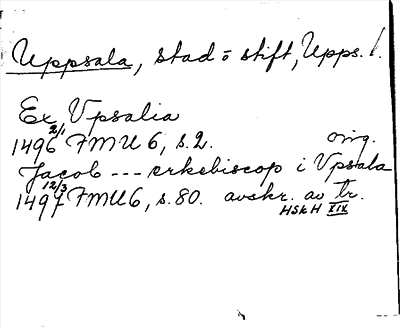 Uppsala, stad o stift, Upps. l.
Ex Vpsalia
1496 2/1 FMU 6, s. 2. orig.
Jacob --- erkebiscop i Vpsala
1497 12/3 FMU 6, s. 80. avskr. av tr.
HSkH XIX